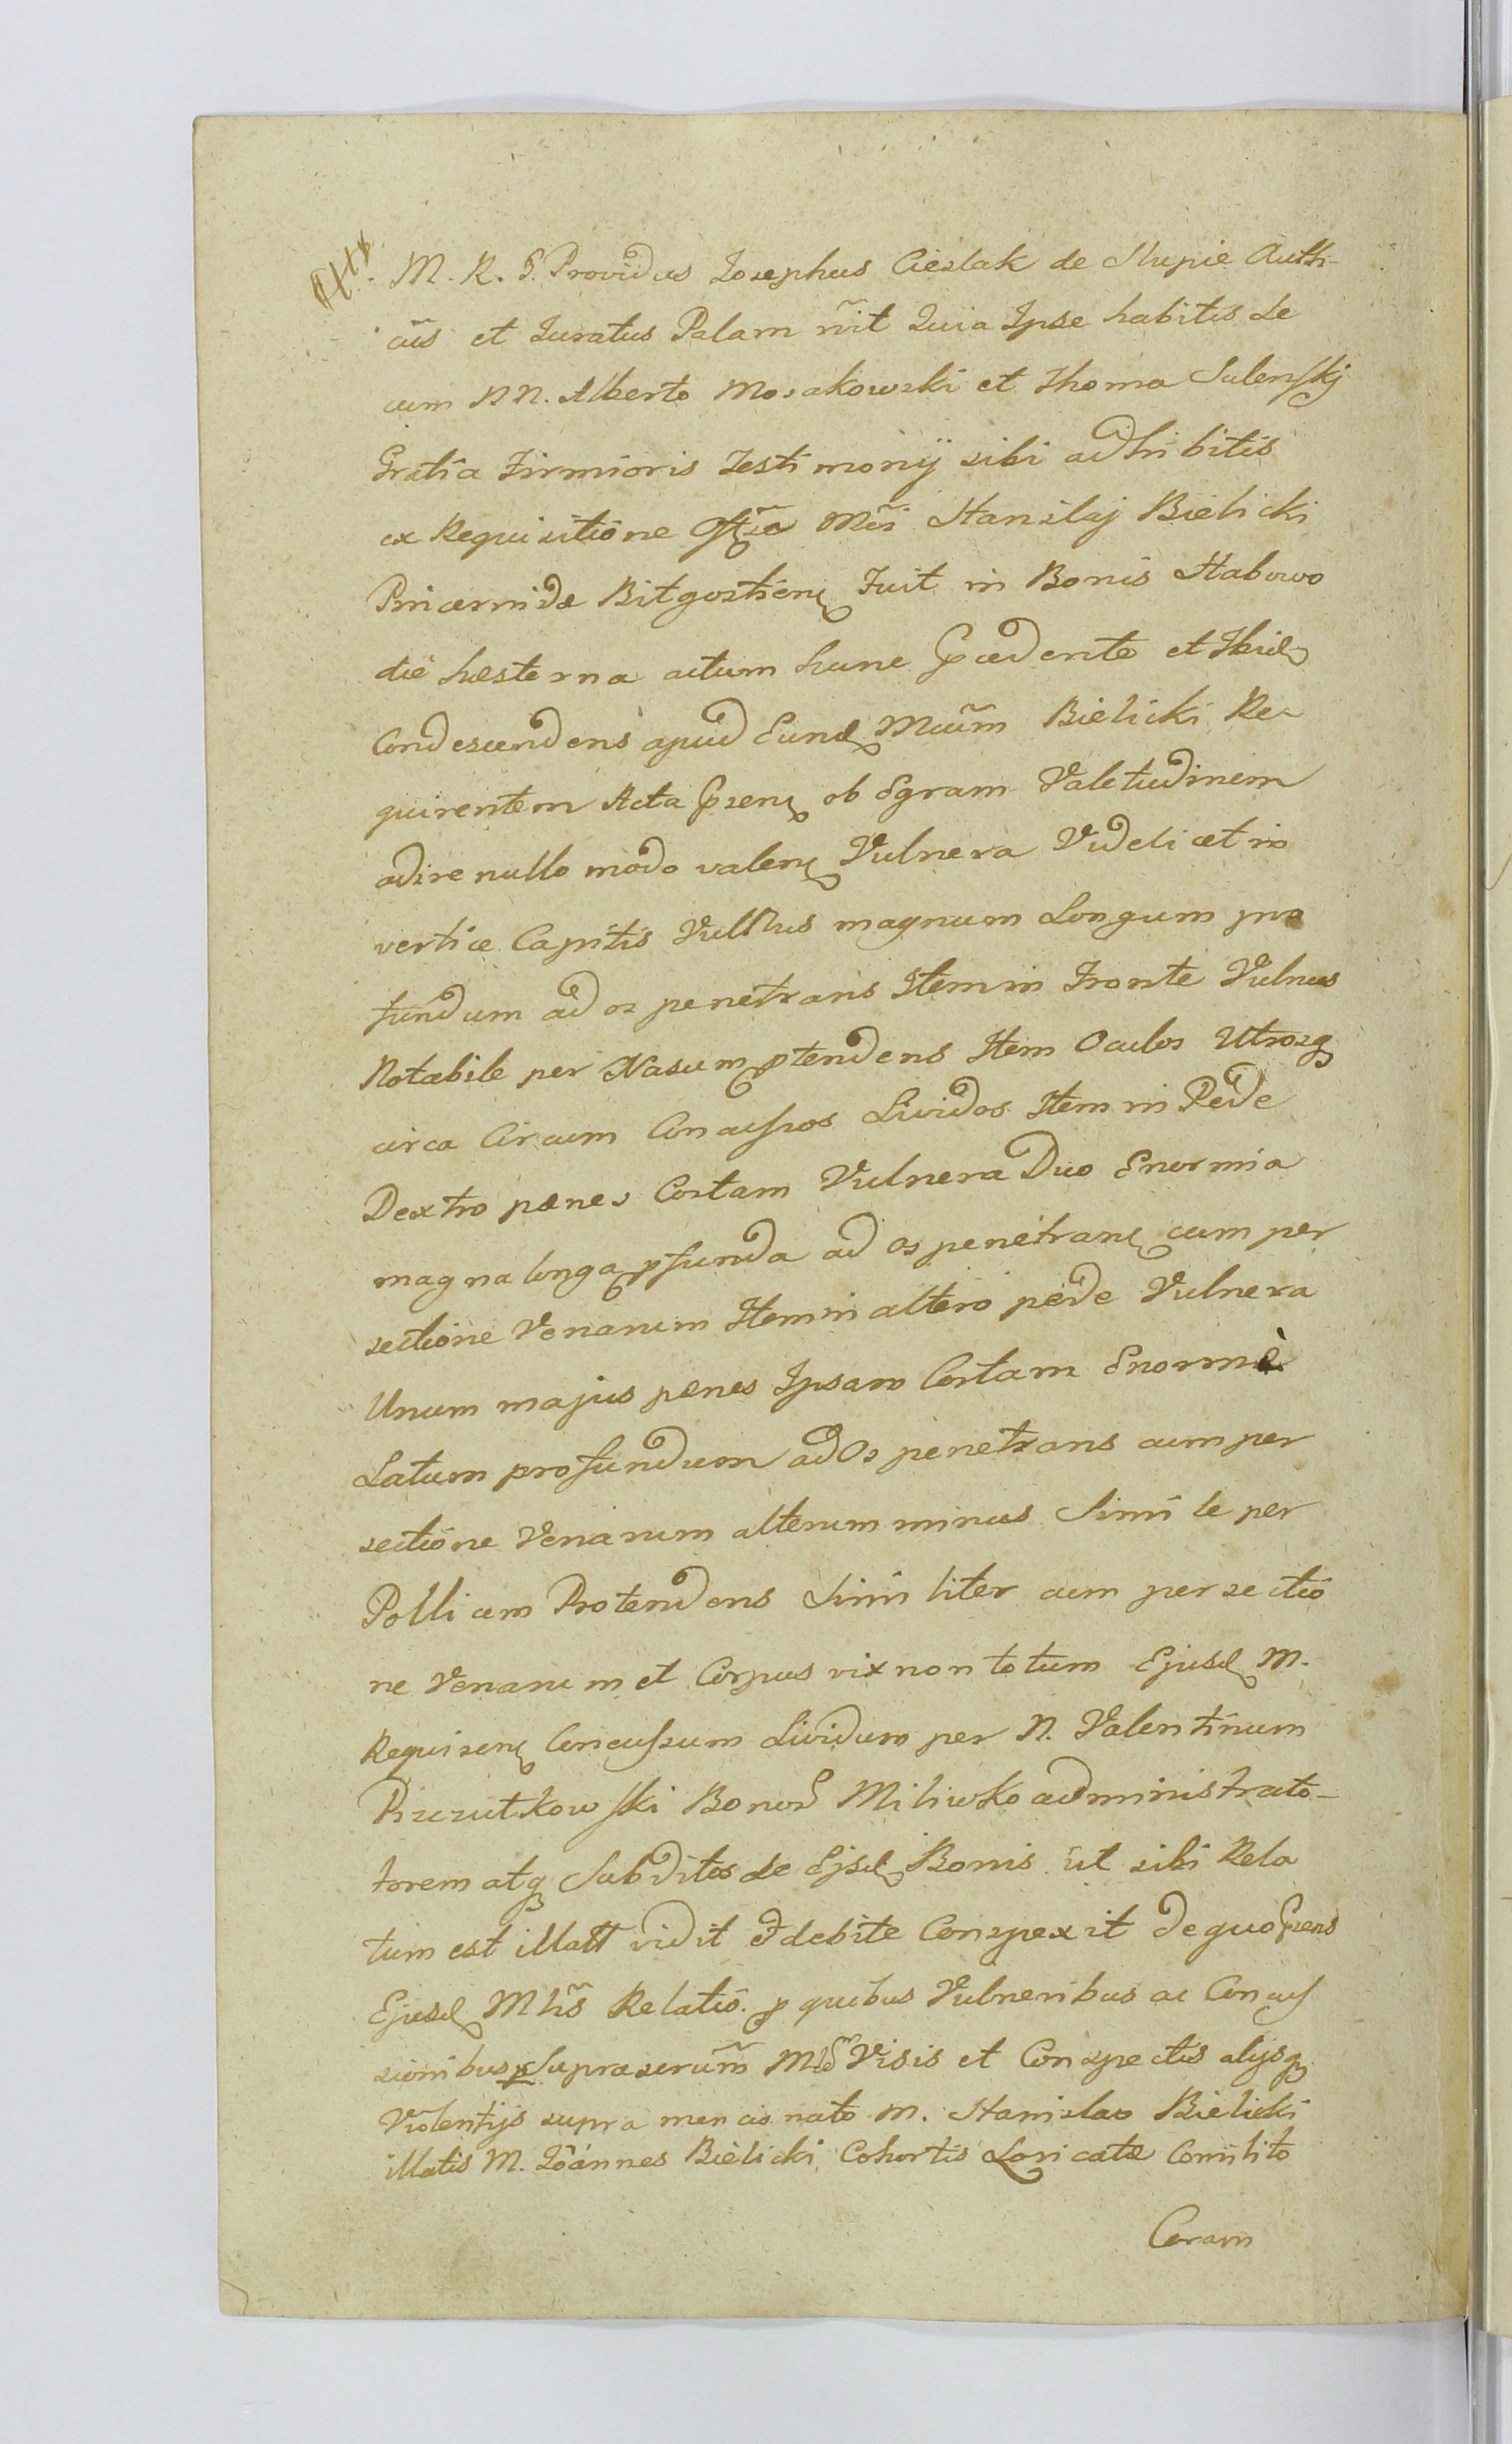 M. R. S. Providus Josephus Cieslak de Slupie Auth-
cũs et Juratus Palam rñit Quia Ipse habitis se
cum NN. Alberto Mosakowski et Thoma Sulenskj
Gratia Firmioris Testimonij sibi adhibitis
ex Requisitione Mci Stanislaj Bielicki
Pincernidæ Bitgostien Fuit in Bonis Stabowo
die hesterna actum hunc Præcedente et Ibid
Condescendens apud Eund Mcum Bielicki Re-
quirentem Acta Præsen ob Egram Valetudinem
adire nullo modo valen Vulnera Videlicet in
vertice Capitis Vullnus magnum Longum pro
fundum ad os penetrans Item in Fronte Vulnus
Notabile per Nasum ptendens Item Oculos Utrosq
circa Circum Concussos Lividos Item in Pede
Dextro penes Costam Vulnera Duo Enormia
magna longa pfunda ad os penetran cum per
sectione Venarum Item in altero pede Vulnera
Unum majus penes Ipsam Costam Enorme
Latum profundum ad Os penetrans cum per
sectione Venarum alterum minus Simile per
Pollicem Protendens Similiter cum persectio
ne Venarum et Corpus vix non totum Ejusd M.
Requiren Concussum Lividum per N. Valentinum
Przezutkowski Bonor Miliwko administrato-
torem atq Subditos de Ejsd Bonis ut sibi Rela
tum est illatt vidit et debite Conspexit de quo Præsens
Ejusd Mlis Relatio. p quibus Vulneribus ac Concus
sionibus p Supraserum Visis et Conspectis alijsq
Violentijs supra mencionato M. Stanislao Bielicki
illatis M. Joannes Bielicki Cohortis Loricatæ Comilito
Coram